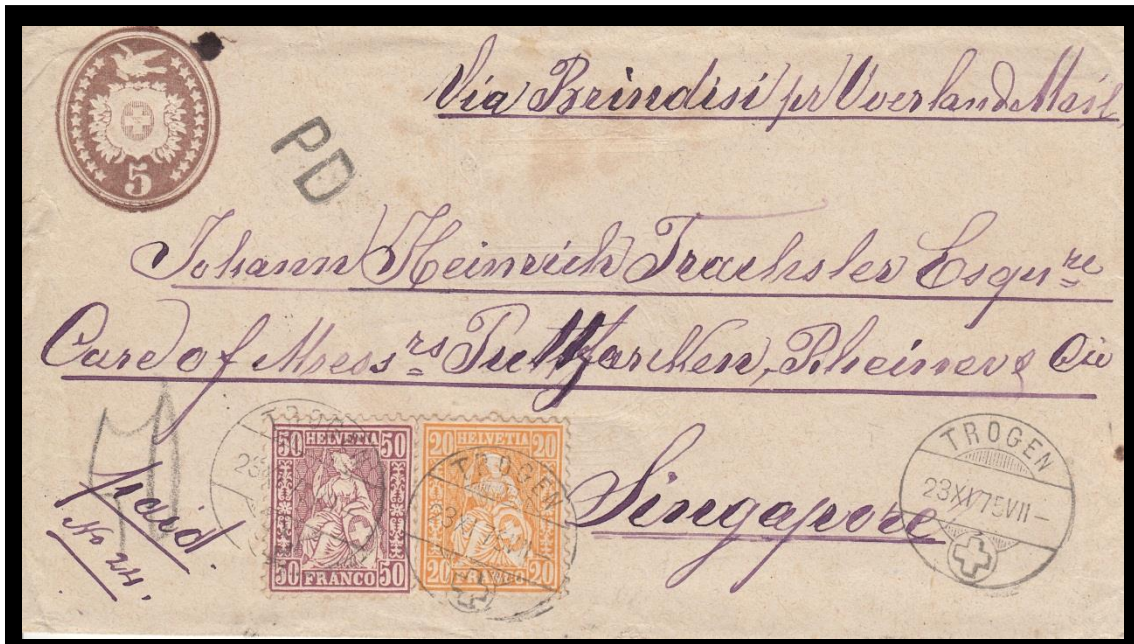 5
Via Brindisi pr Overland Mail
PD
Johann Heinrich Trachsler Esqure
Care of Messrs Puttfarcken, Rheiner & Cie
Singapore
paid
No 24.
TROGEN
50 HELVETIA 50
50 FRANCO 50
20 HELVETIA 20
20 FRANCO 20
TROGEN
TROGEN
23 XI 75 VII-